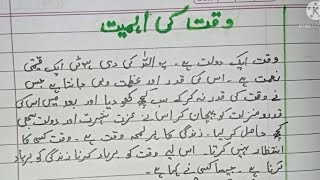 وقت کی اہمیت
وقت ایک دولت ہے۔ یہ اللہ کی دی ہوئی ایک قیمتی
نعمت ہے۔ اس کی قدر اور عظمت وہی جانتا ہے جس
نے وقت کی قدر نہ کرکے سب کچھ کھو دیا اور بعد میں اس کی
قدر و منزلت کو پہچان کر اس نے عزت شہرت اور دولت سبھی
کچھ حاصل کر لیا۔ زندگی کا ہر لمحہ وقت ہے۔ وقت کسی کا
انتظار نہیں کرتا۔ اس لیے وقت کو برباد کرنا زندگی کو برباد
کرنا ہے۔ جیسا کسی نے کہا ہے۔